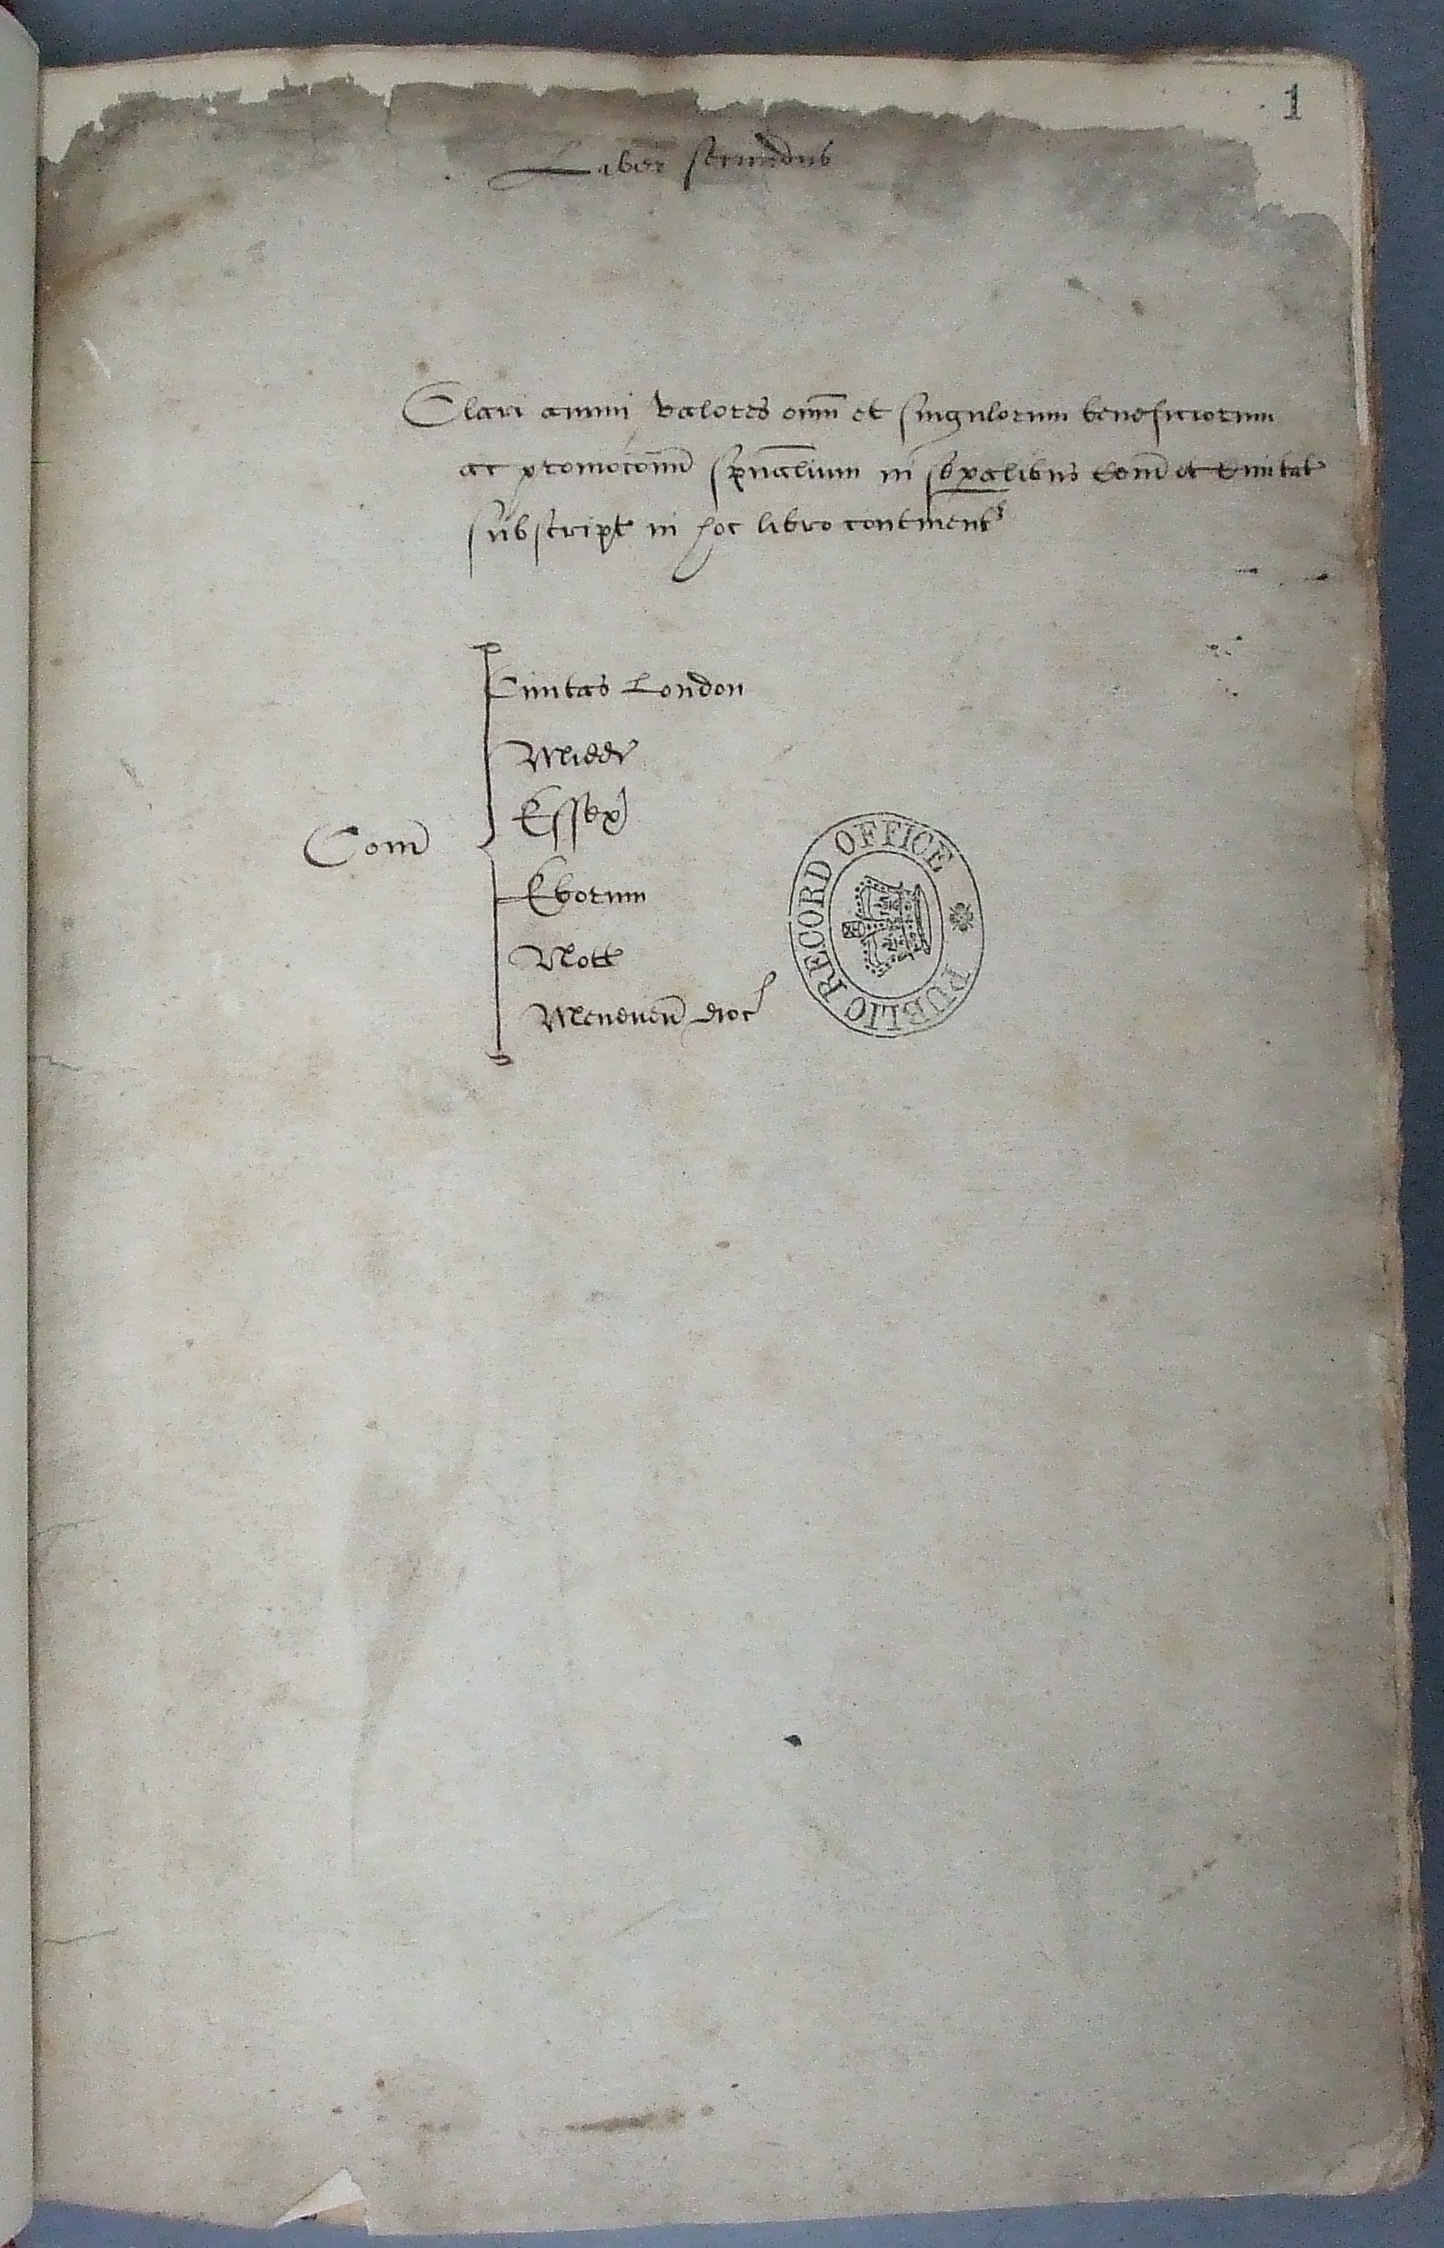 1
Liber secundus
Clari annui valores omĩ et singulorum beneficiorum
ac promocom̃ sp̃ualium in sep̱alibus Com̃ et Civitat
subscript in hoc libro content
Civitas London
Midd
Essex
Com̃
Eborum
Nott
Meneven̄ dioc
PUBLIC RECORD OFFICE